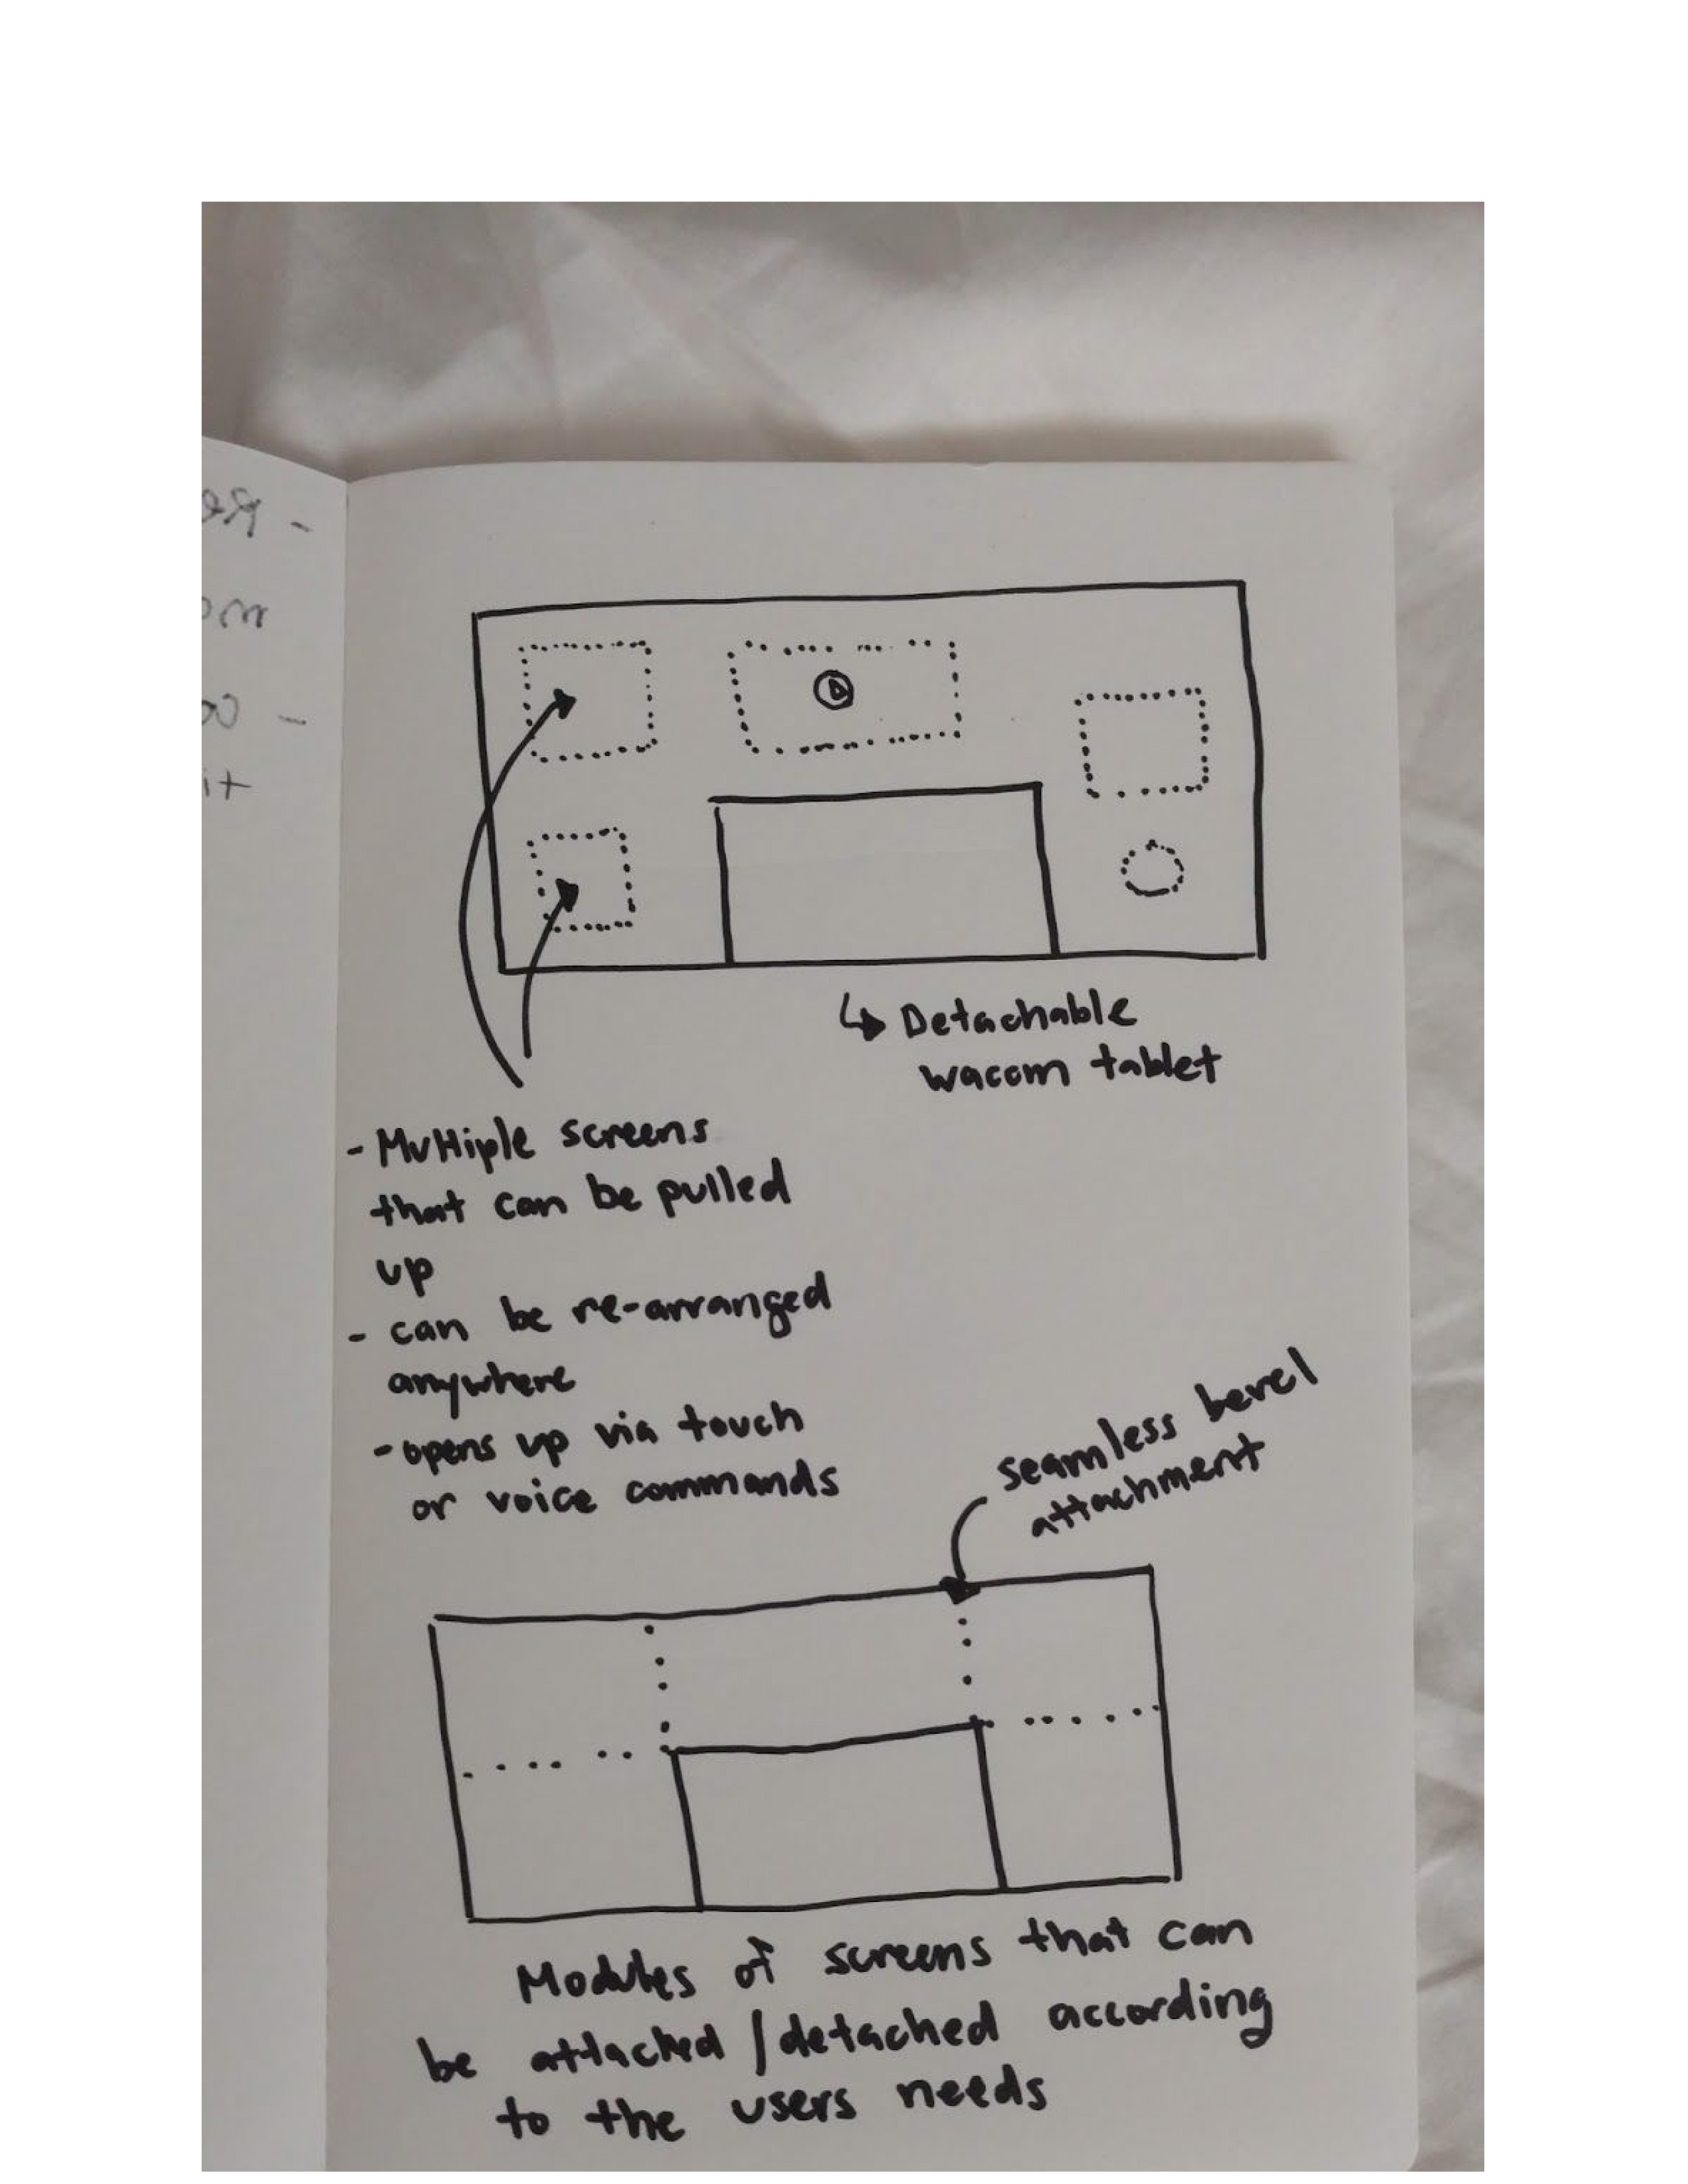 Detachable
wacom tablet
- Multiple screens
that can be pulled
up
- can be re-arranged
anywhere
- opens up via touch
or voice commands
seamless bevel
attachment
Modules of screens that can
be attached / detached according
to the users needs